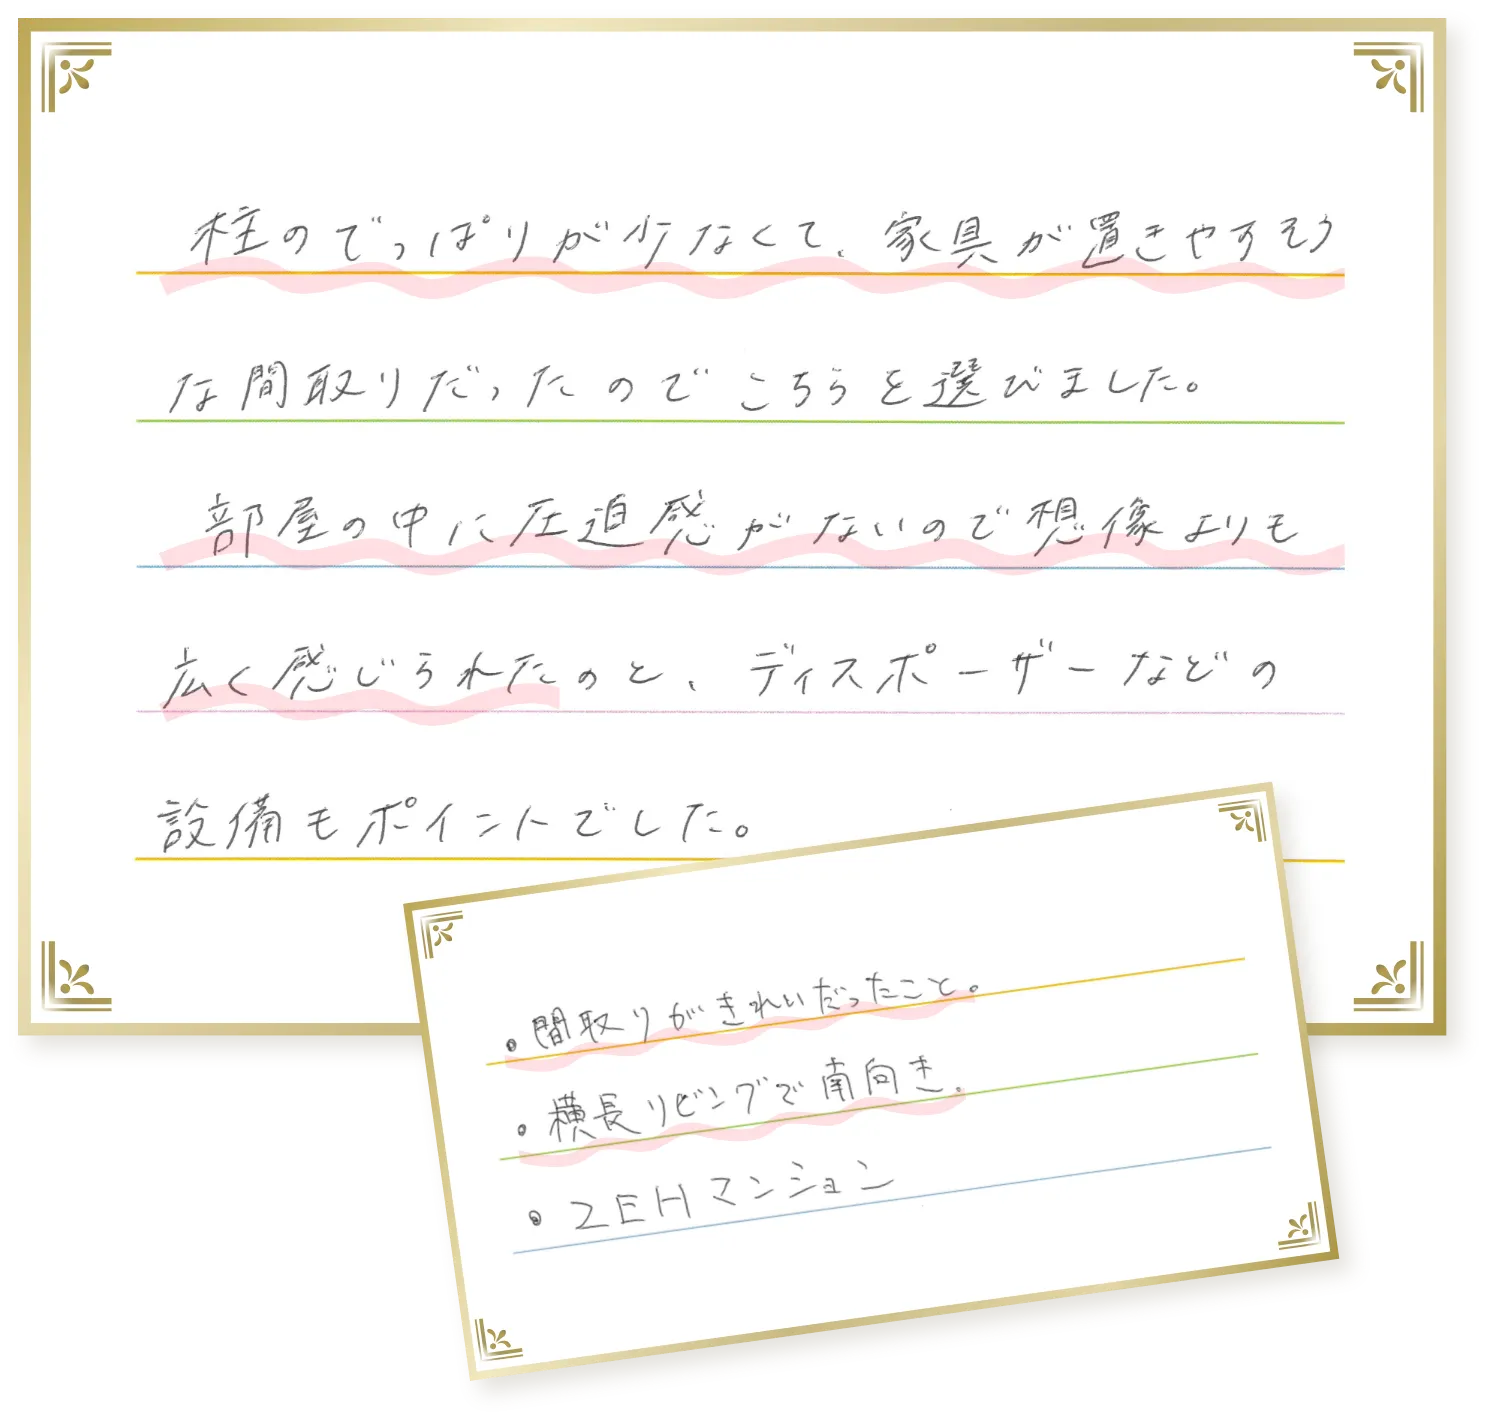 柱のでっぱりが少なくて、家具が置きやすそう
な間取りだったのでこちらを選びました。
部屋の中に圧迫感がないので想像よりも
広く感じられたのと、ディスポーザーなどの
設備もポイントでした。
・間取りがきれいだったこと。
・横長リビングで南向き。
・ZEHマンション